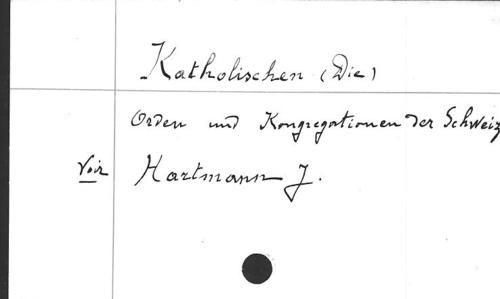 Katholischen (Die)
Orden und Kongregationen der Schweiz
Voir Hartmann J.